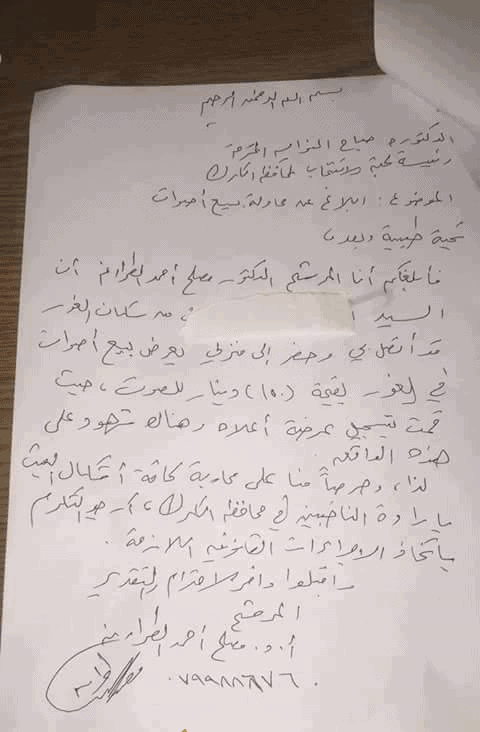 بسم الله الرحمن الرحيم
الدكتورة صباح النوايسه المحترمة
رئيسة لجنة الانتخاب لمحافظة الكرك
الموضوع: ابلاغ عن محاولة بيع أصوات
تحية طيبة وبعد،
فأبلغكم أنا المرشح الدكتور مصلح أحمد الطراونه أن
السيد من سكان الغور
قد أتصل بي وحضر إلى منزلي يعرض بيع أصوات
في الغور بقيمة (١٥٠) دينار للصوت، حيث
قمت بتسجيل عرضة أعلاه وهناك شهود على
هذه الواقعه
لذا، وحرصاً منا على محاربة كافة أشكال العبث
بإرادة الناخبين في محافظة الكرك، أرجو التكرم
بإتخاذ الاجراءات القانونيه اللازمة.
واقبلوا وافر الاحترام والتقدير
المرشح
أ.د. مصلح أحمد الطراونه